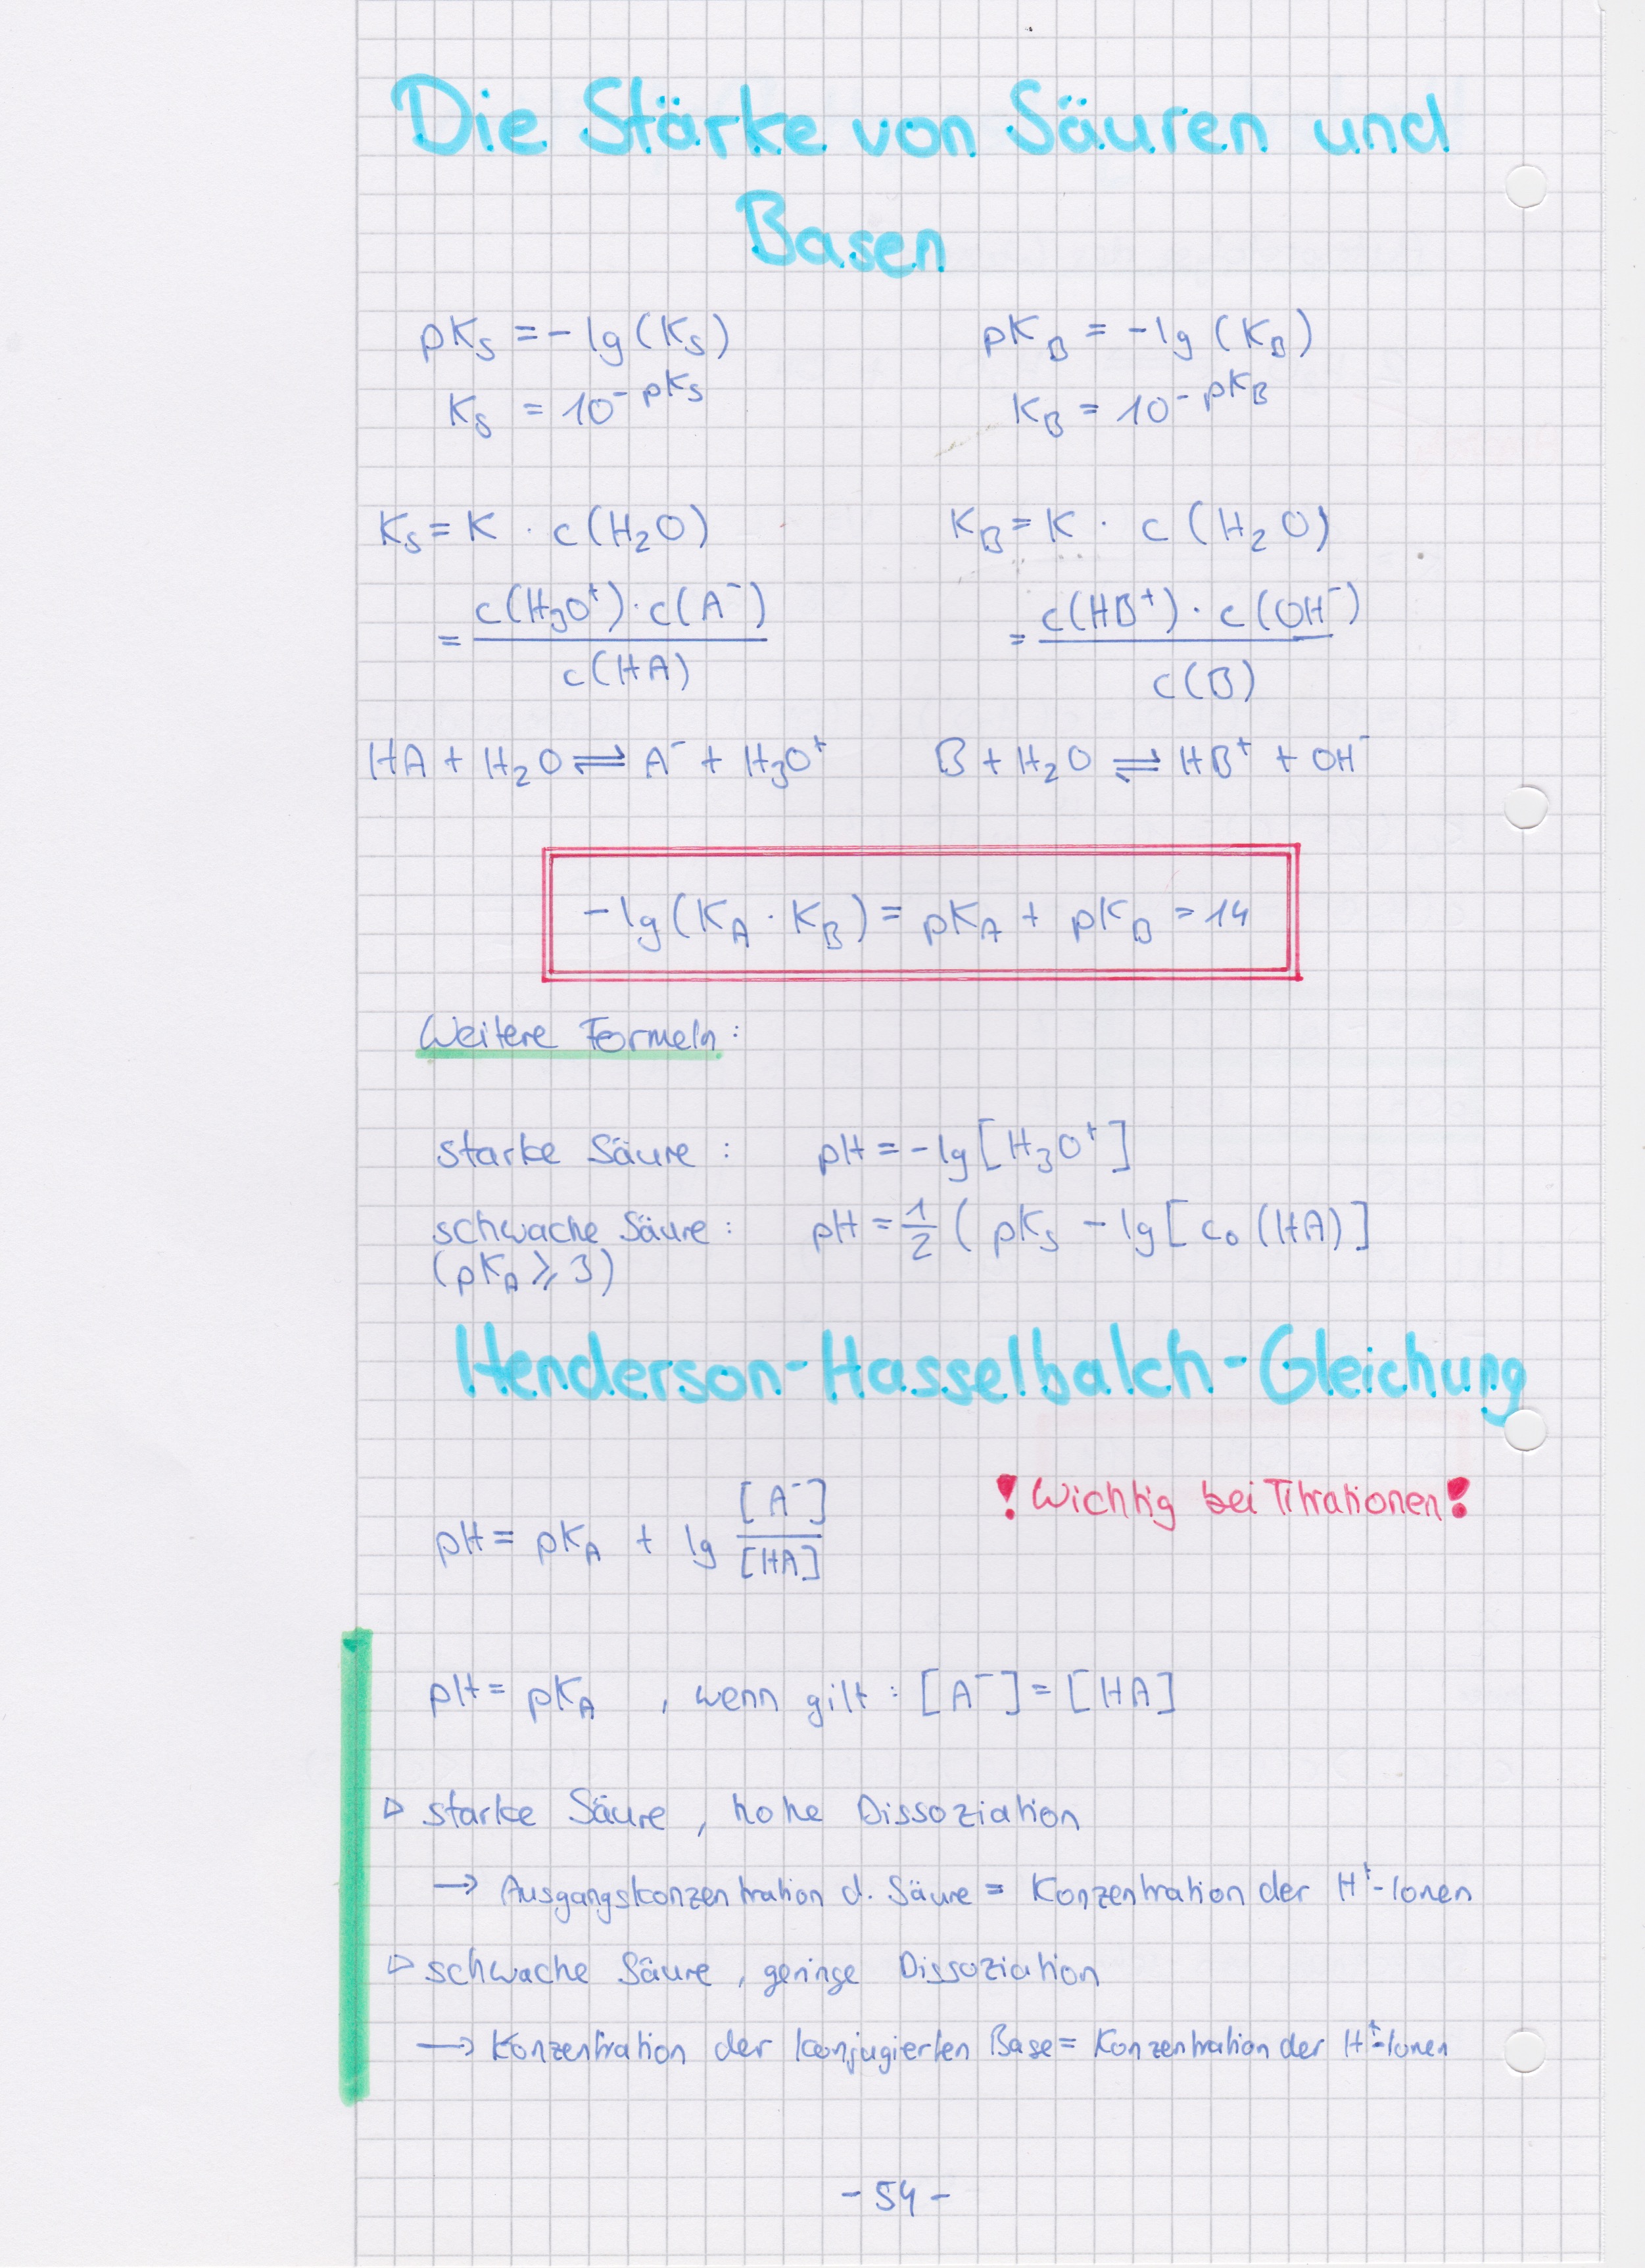 Die Stärke von Säuren und
Basen
pKs = - lg (Ks)
pKB = - lg (KB)
Ks = 10^- pKs
KB = 10^- pKB
Ks = K · c(H2O)
KB = K · c (H2O)
= c(H3O+) · c(A-) / c(HA)
= c(HB+) · c(OH-) / c(B)
HA + H2O ⇌ A- + H3O+
B + H2O ⇌ HB+ + OH-
-lg (KA · KB) = pKA + pKB = 14
Weitere Formeln:
starke Säure : pH = - lg [H3O+]
schwache Säure : pH = 1/2 ( pKs - lg [ c0 (HA) ]
(pKA ⩾ 3)
Henderson-Hasselbalch-Gleichung
! Wichtig bei Titrationen!
pH = pKA + lg [A-] / [HA]
pH = pKA , wenn gilt : [A-] = [HA]
▷ starke Säure , hohe Dissoziation
→ Ausgangskonzentration d. Säure = Konzentration der H+-Ionen
▷ schwache Säure , geringe Dissoziation
→ Konzentration der konjugierten Base = Konzentration der H+-Ionen
- 54 -